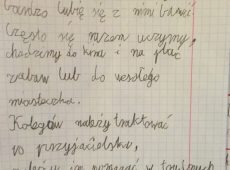 bardzo lubię się z nim bawić
Często się razem uczymy,
chodzimy do kina i na plac
zabaw lub do wesołego
miasteczka.
Kolegów należy traktować
po przyjacielsku,
im pomagać w trudnych